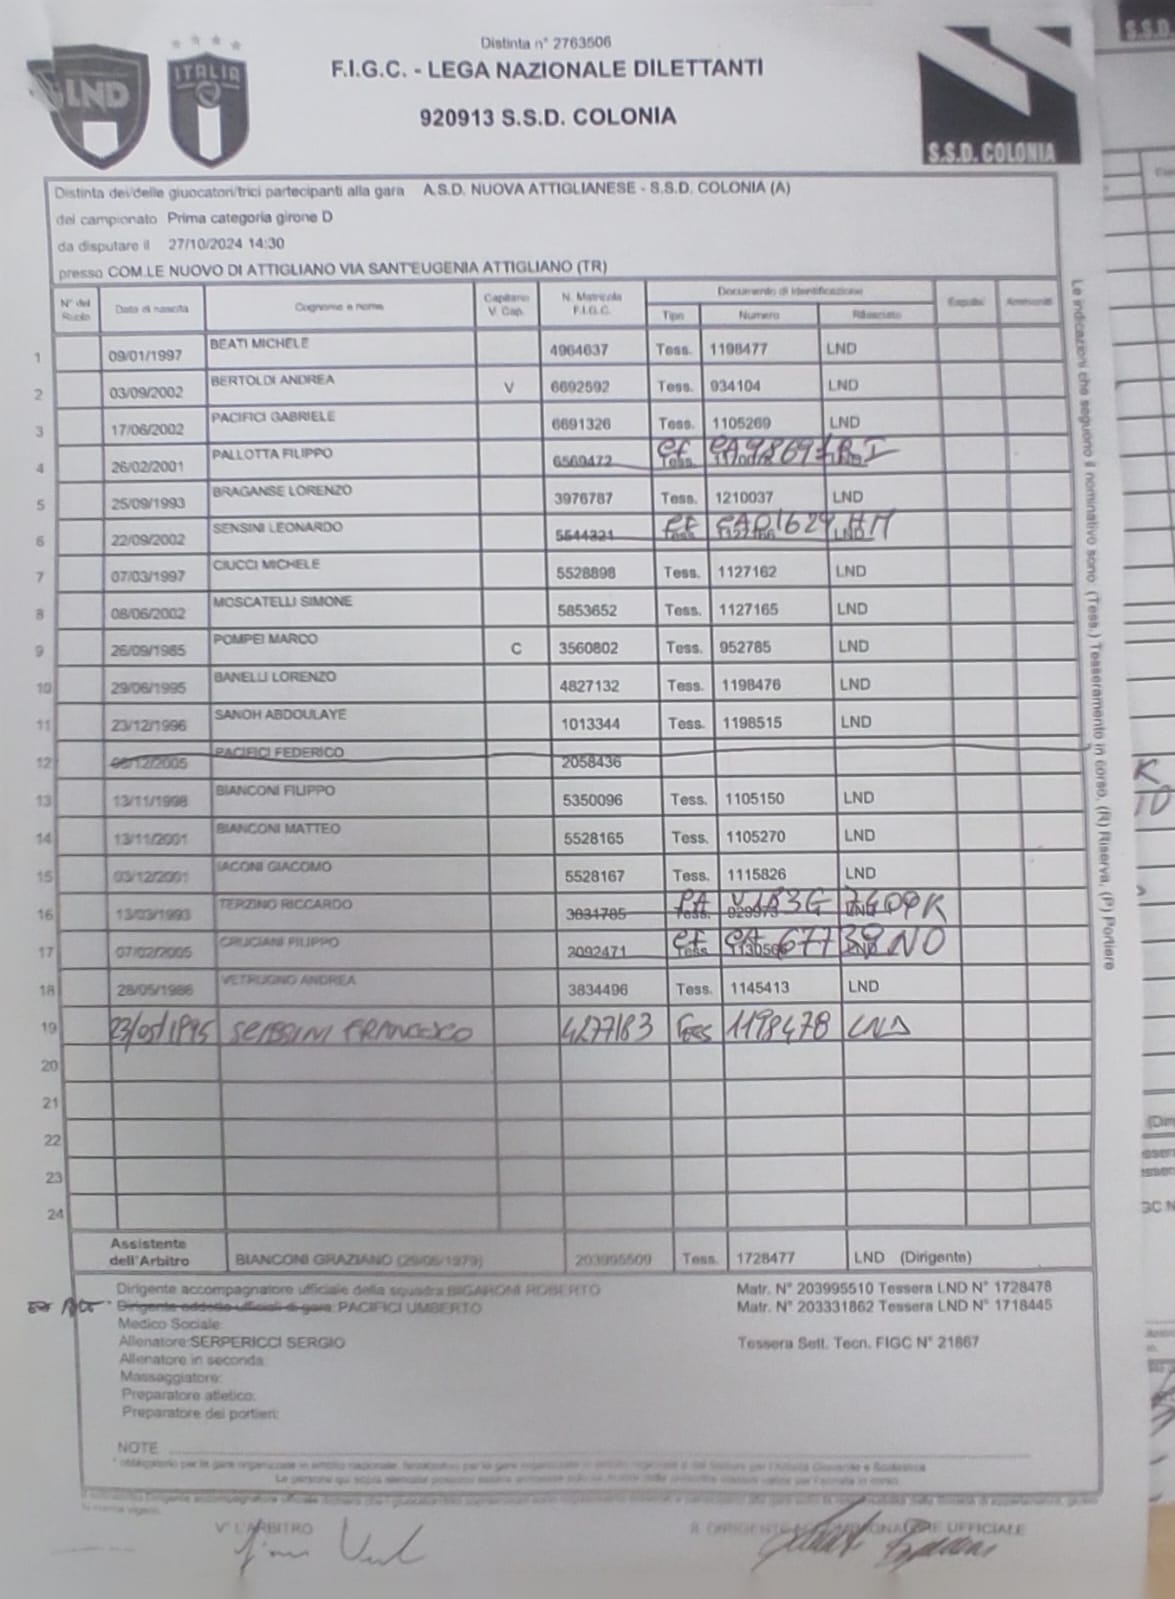 Distinta n° 2763506
F.I.G.C. - LEGA NAZIONALE DILETTANTI
920913 S.S.D. COLONIA
LND
ITALIA
S.S.D. COLONIA
Distinta dei/delle giuocatori/trici partecipanti alla gara A.S.D. NUOVA ATTIGLIANESE - S.S.D. COLONIA (A)
del campionato Prima categoria girone D
da disputare il 27/10/2024 14:30
presso COM.LE NUOVO DI ATTIGLIANO VIA SANT'EUGENIA ATTIGLIANO (TR)
N° del Ruolo Data di nascita Cognome e nome Capitano V. Cap. N. Matricola F.I.G.C. Documento di identificazione Espulsi Ammoniti
Tipo Numero Rilasciato
1 09/01/1997 BEATI MICHELE 4964637 Tess. 1198477 LND
2 03/09/2002 BERTOLDI ANDREA V 6692592 Tess. 934104 LND
3 17/06/2002 PACIFICI GABRIELE 6691326 Tess. 1105269 LND
4 26/02/2001 PALLOTTA FILIPPO 6569472
5 25/09/1993 BRAGANSE LORENZO 3976787 Tess. 1210037 LND
6 22/09/2002 SENSINI LEONARDO 5544321
7 07/03/1997 CIUCCI MICHELE 5528898 Tess. 1127162 LND
8 08/06/2002 MOSCATELLI SIMONE 5853652 Tess. 1127165 LND
9 26/09/1985 POMPEI MARCO C 3560802 Tess. 952785 LND
10 29/06/1995 BANELLI LORENZO 4827132 Tess. 1198476 LND
11 23/12/1996 SANOH ABDOULAYE 1013344 Tess. 1198515 LND
12 PACIFICI FEDERICO 2058436
13 13/11/1998 BIANCONI FILIPPO 5350096 Tess. 1105150 LND
14 13/11/2001 BIANCONI MATTEO 5528165 Tess. 1105270 LND
15 03/12/2001 IACONI GIACOMO 5528167 Tess. 1115826 LND
16 13/03/1993 TERZINO RICCARDO 3831785
17 07/02/2005 CRUCIANI FILIPPO 2092471
18 28/05/1986 VETRUGNO ANDREA 3834496 Tess. 1145413 LND
19 FRANCESCO 4277183 Tess 1198478 LND
20
21
22
23
24
Assistente dell'Arbitro BIANCONI GRAZIANO (29/05/1979) 203995509 Tess. 1728477 LND (Dirigente)
Dirigente accompagnatore ufficiale della squadra BIGARONI ROBERTO Matr. N° 203995510 Tessera LND N° 1728478
* Dirigente addetto ufficiali di gara: PACIFICI UMBERTO Matr. N° 203331862 Tessera LND N° 1718445
Medico Sociale:
Allenatore: SERPERICCI SERGIO Tessera Sett. Tecn. FIGC N° 21867
Allenatore in seconda:
Massaggiatore:
Preparatore atletico:
Preparatore dei portieri:
NOTE
V° L'ARBITRO IL DIRIGENTE ACCOMPAGNATORE UFFICIALE
Le indicazioni che seguono il nominativo sono: (Tess.) Tesseramento in corso, (R) Riserva, (P) Portiere